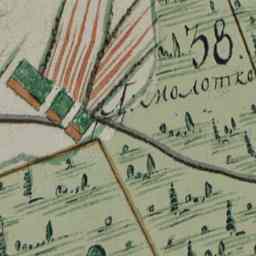 38.
Д. Молотко